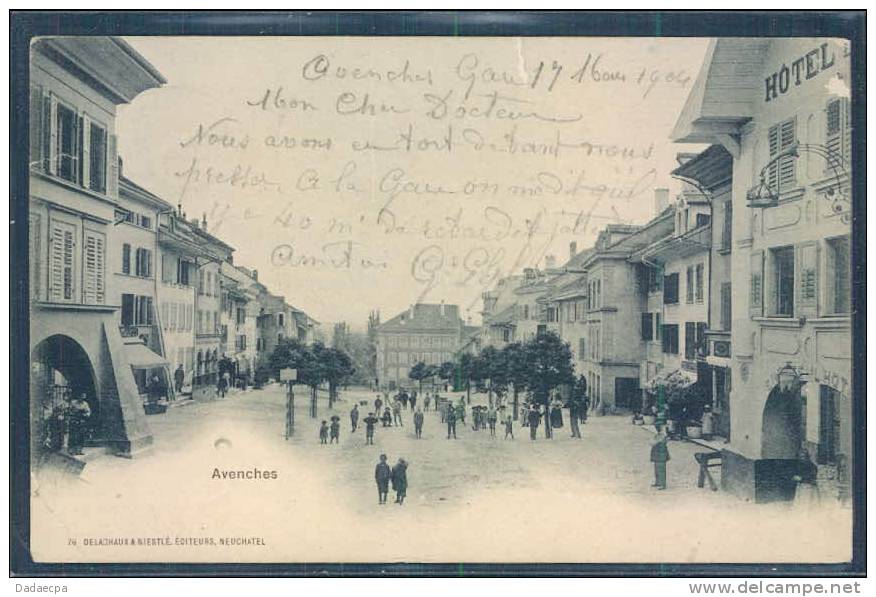 Avenches Gare 17 Mars 1904
Mon Cher Docteur
Nous avons eu tort de tant nous
presser. A la Gare on me dit qu'il
y a 40 m' de retard et
Amitiés
HÔTEL
HÔT
Avenches
76 DELACHAUX & NIESTLÉ, ÉDITEURS, NEUCHATEL
Dadaecpa
www.delcampe.net